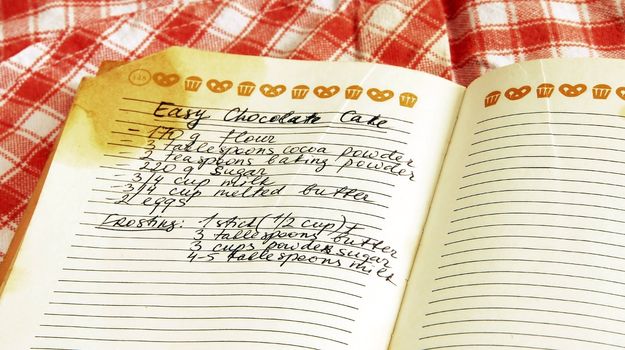 148
Easy Chocolate Cake
- 170 g flour
3 tablespoons cocoa powder
2 teaspoons baking powder
220 g sugar
- 3/4 cup milk
- 3/4 cup melted butter
- 2 eggs
Frosting: 1 stick (1/2 cup) +
3 tablespoons butter
3 cups powder sugar
4-5 tablespoons milk